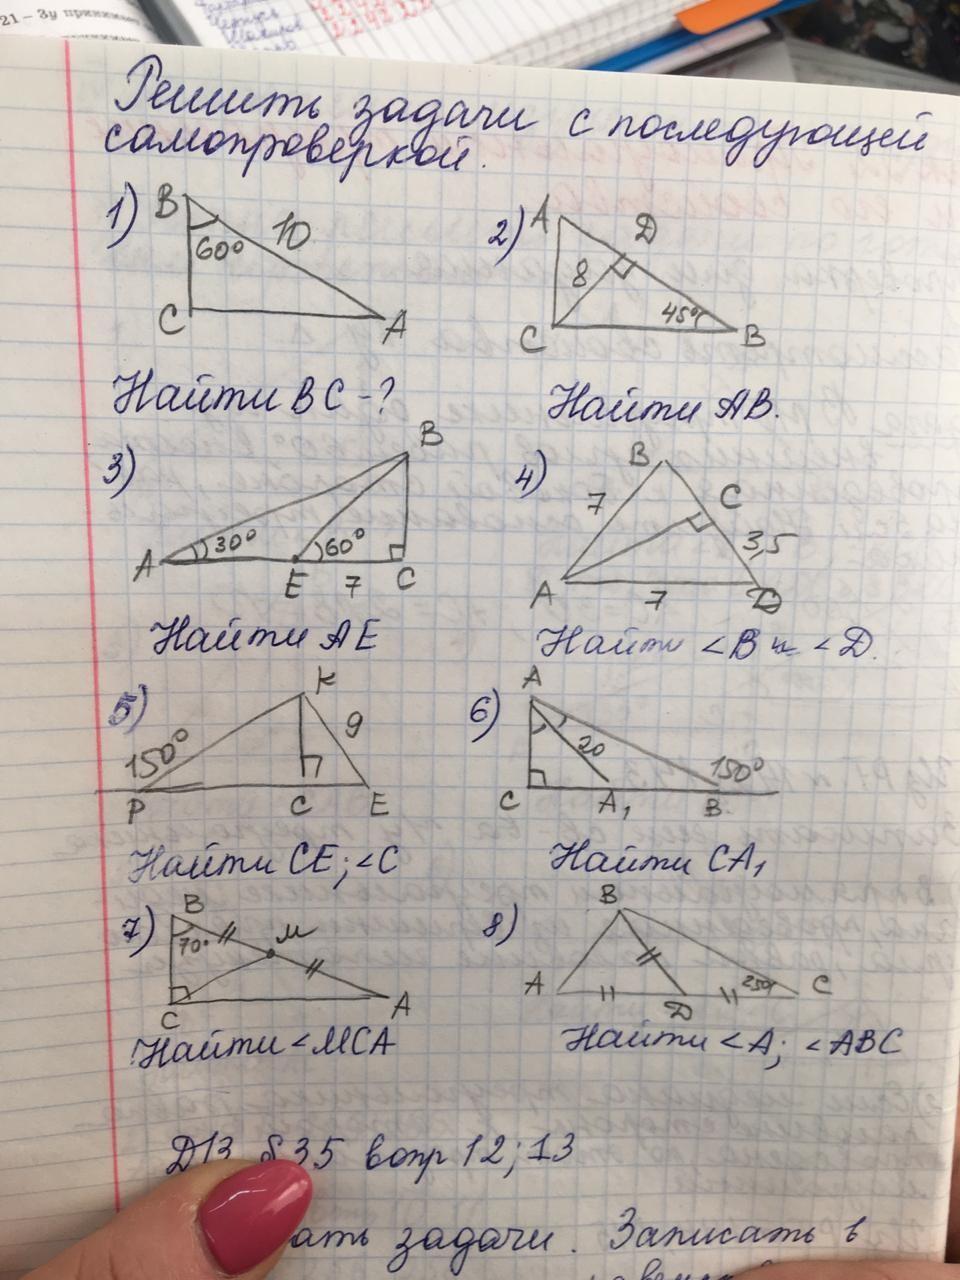 21 – Зу
Решить задачи с последующей
самопроверкой.
1) B 60° 10 C A
2) A D 8 45° C B
Найти BC - ?
Найти AB.
3) B A 30° 60° E 7 C
4) B 7 C 3,5 A 7 D
Найти AE
Найти <B и <D.
5) K 150° 9 P C E
6) A 20 150° C A₁ B
Найти CE; <C
Найти CA₁
7) B 70° M C A
8) B A D 25° C
Найти <MCA
Найти <A; <ABC
ДЗ §35 вопр 12; 13
ать задачи. Записать в